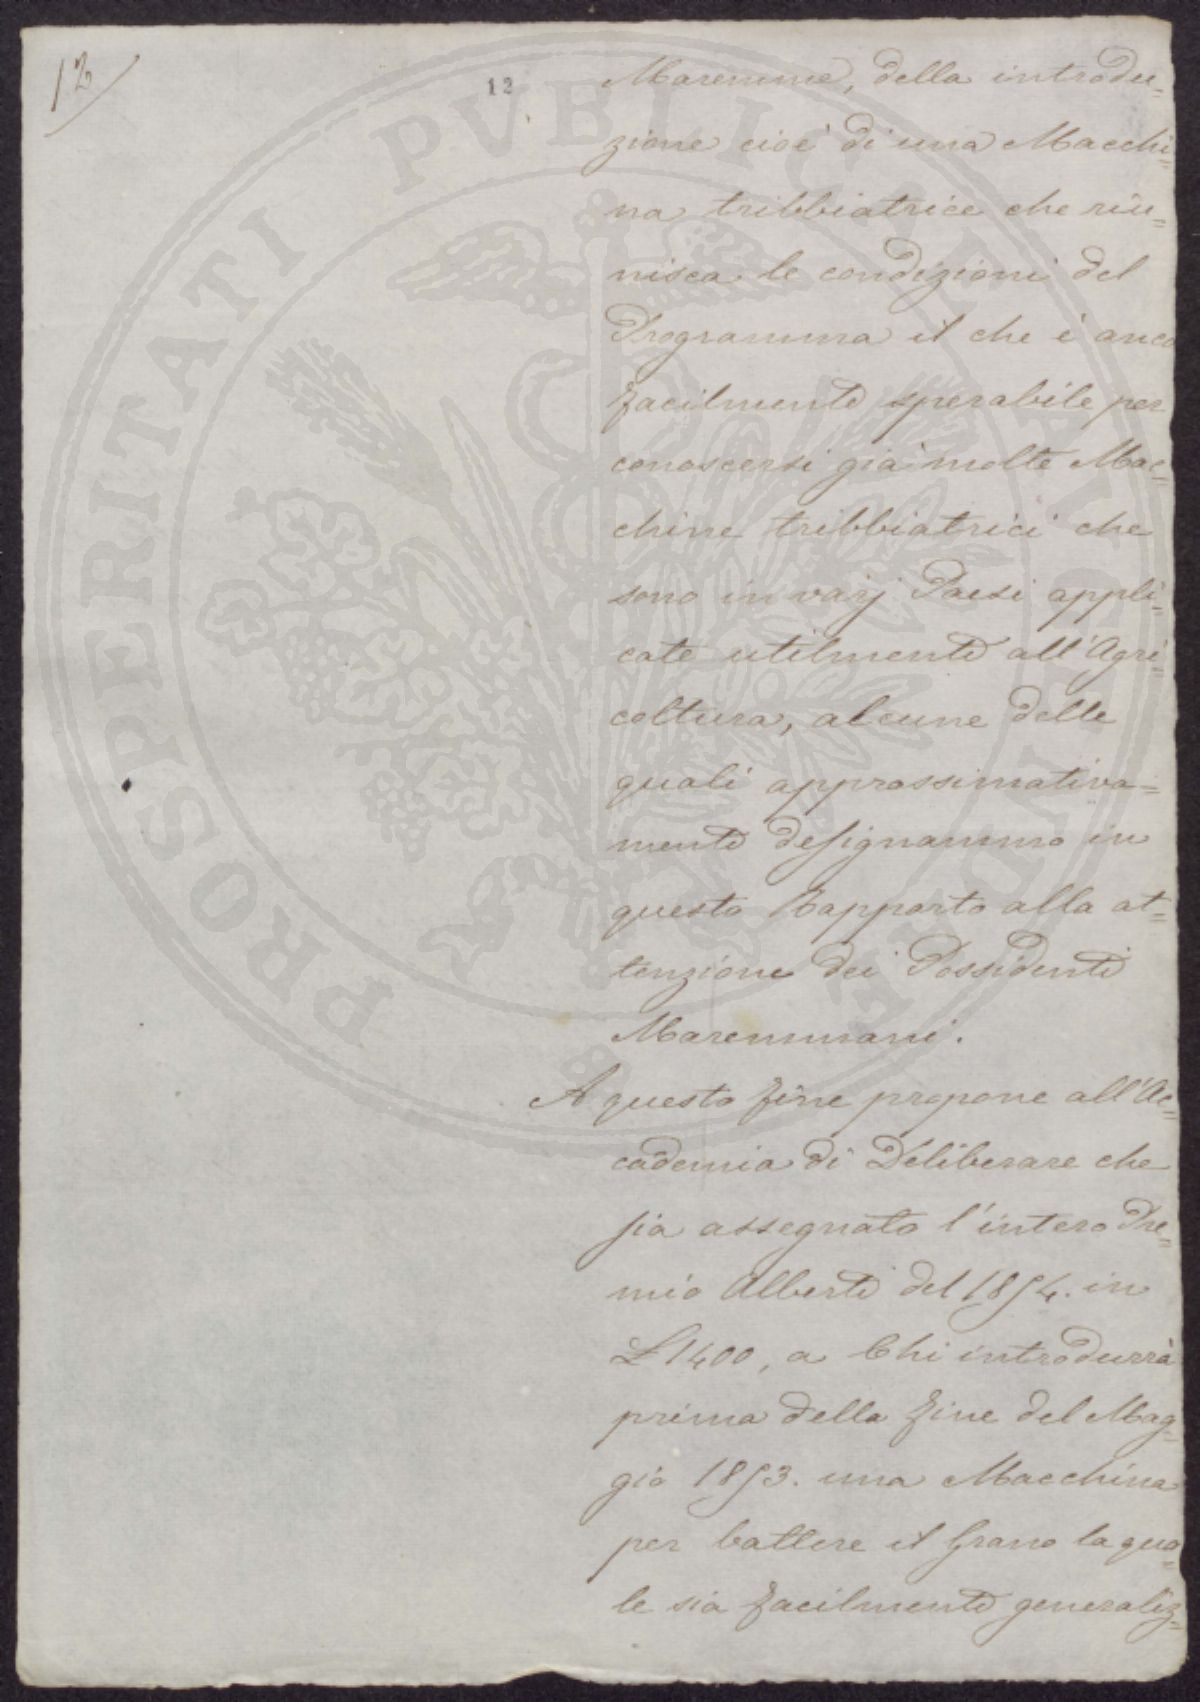 12
12
Maremme, della introdu=
zione cioè di una Macchi=
na tribbiatrice che riu=
nisca le condizioni del
Programma il che è anco
facilmente sperabile per
conoscersi già molte Mac=
chine tribbiatrici che
sono in varj Paesi appli=
cate utilmente all'Agri=
coltura, alcune delle
quali approssimativa=
mente designammo in
questo Rapporto alla at=
tenzione dei Possidenti
Maremmani.
A questo fine propone all'Ac=
cademia di Deliberare che
sia assegnato l'intero Pre=
mio Alberti del 1854. in
£ 1400, a Chi introdurrà
prima della fine del Mag=
gio 1853. una Macchina
per battere il Grano la qua=
le sia facilmente generaliz=
PROSPERITATI PVBLICAE AVGENDAE